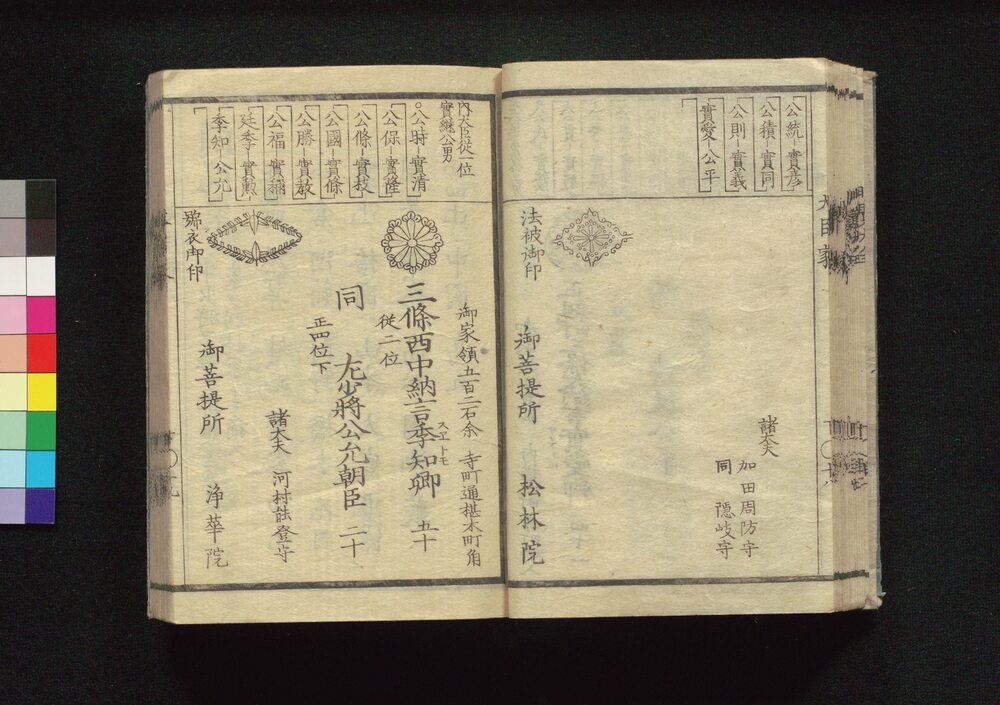 公統—實彦
公積—實同
公則—實義
實愛—公平
諸大夫
加田周防守
同 隠岐守
法被御印
御菩提所 松林院
内大臣従一位
實継公男
○公時—實清
公保—實隆
公條—實枝
公國—實條
公勝—實教
公福—實稱
廷季—實勲
季知—公允
御家領五百二石余 寺町通椹木町角
三條西中納言季知卿 五十
スヱトモ
従二位
同 左少將公允朝臣 二十
正四位下
諸大夫 河村能登守
號衣御印
御菩提所 浄華院